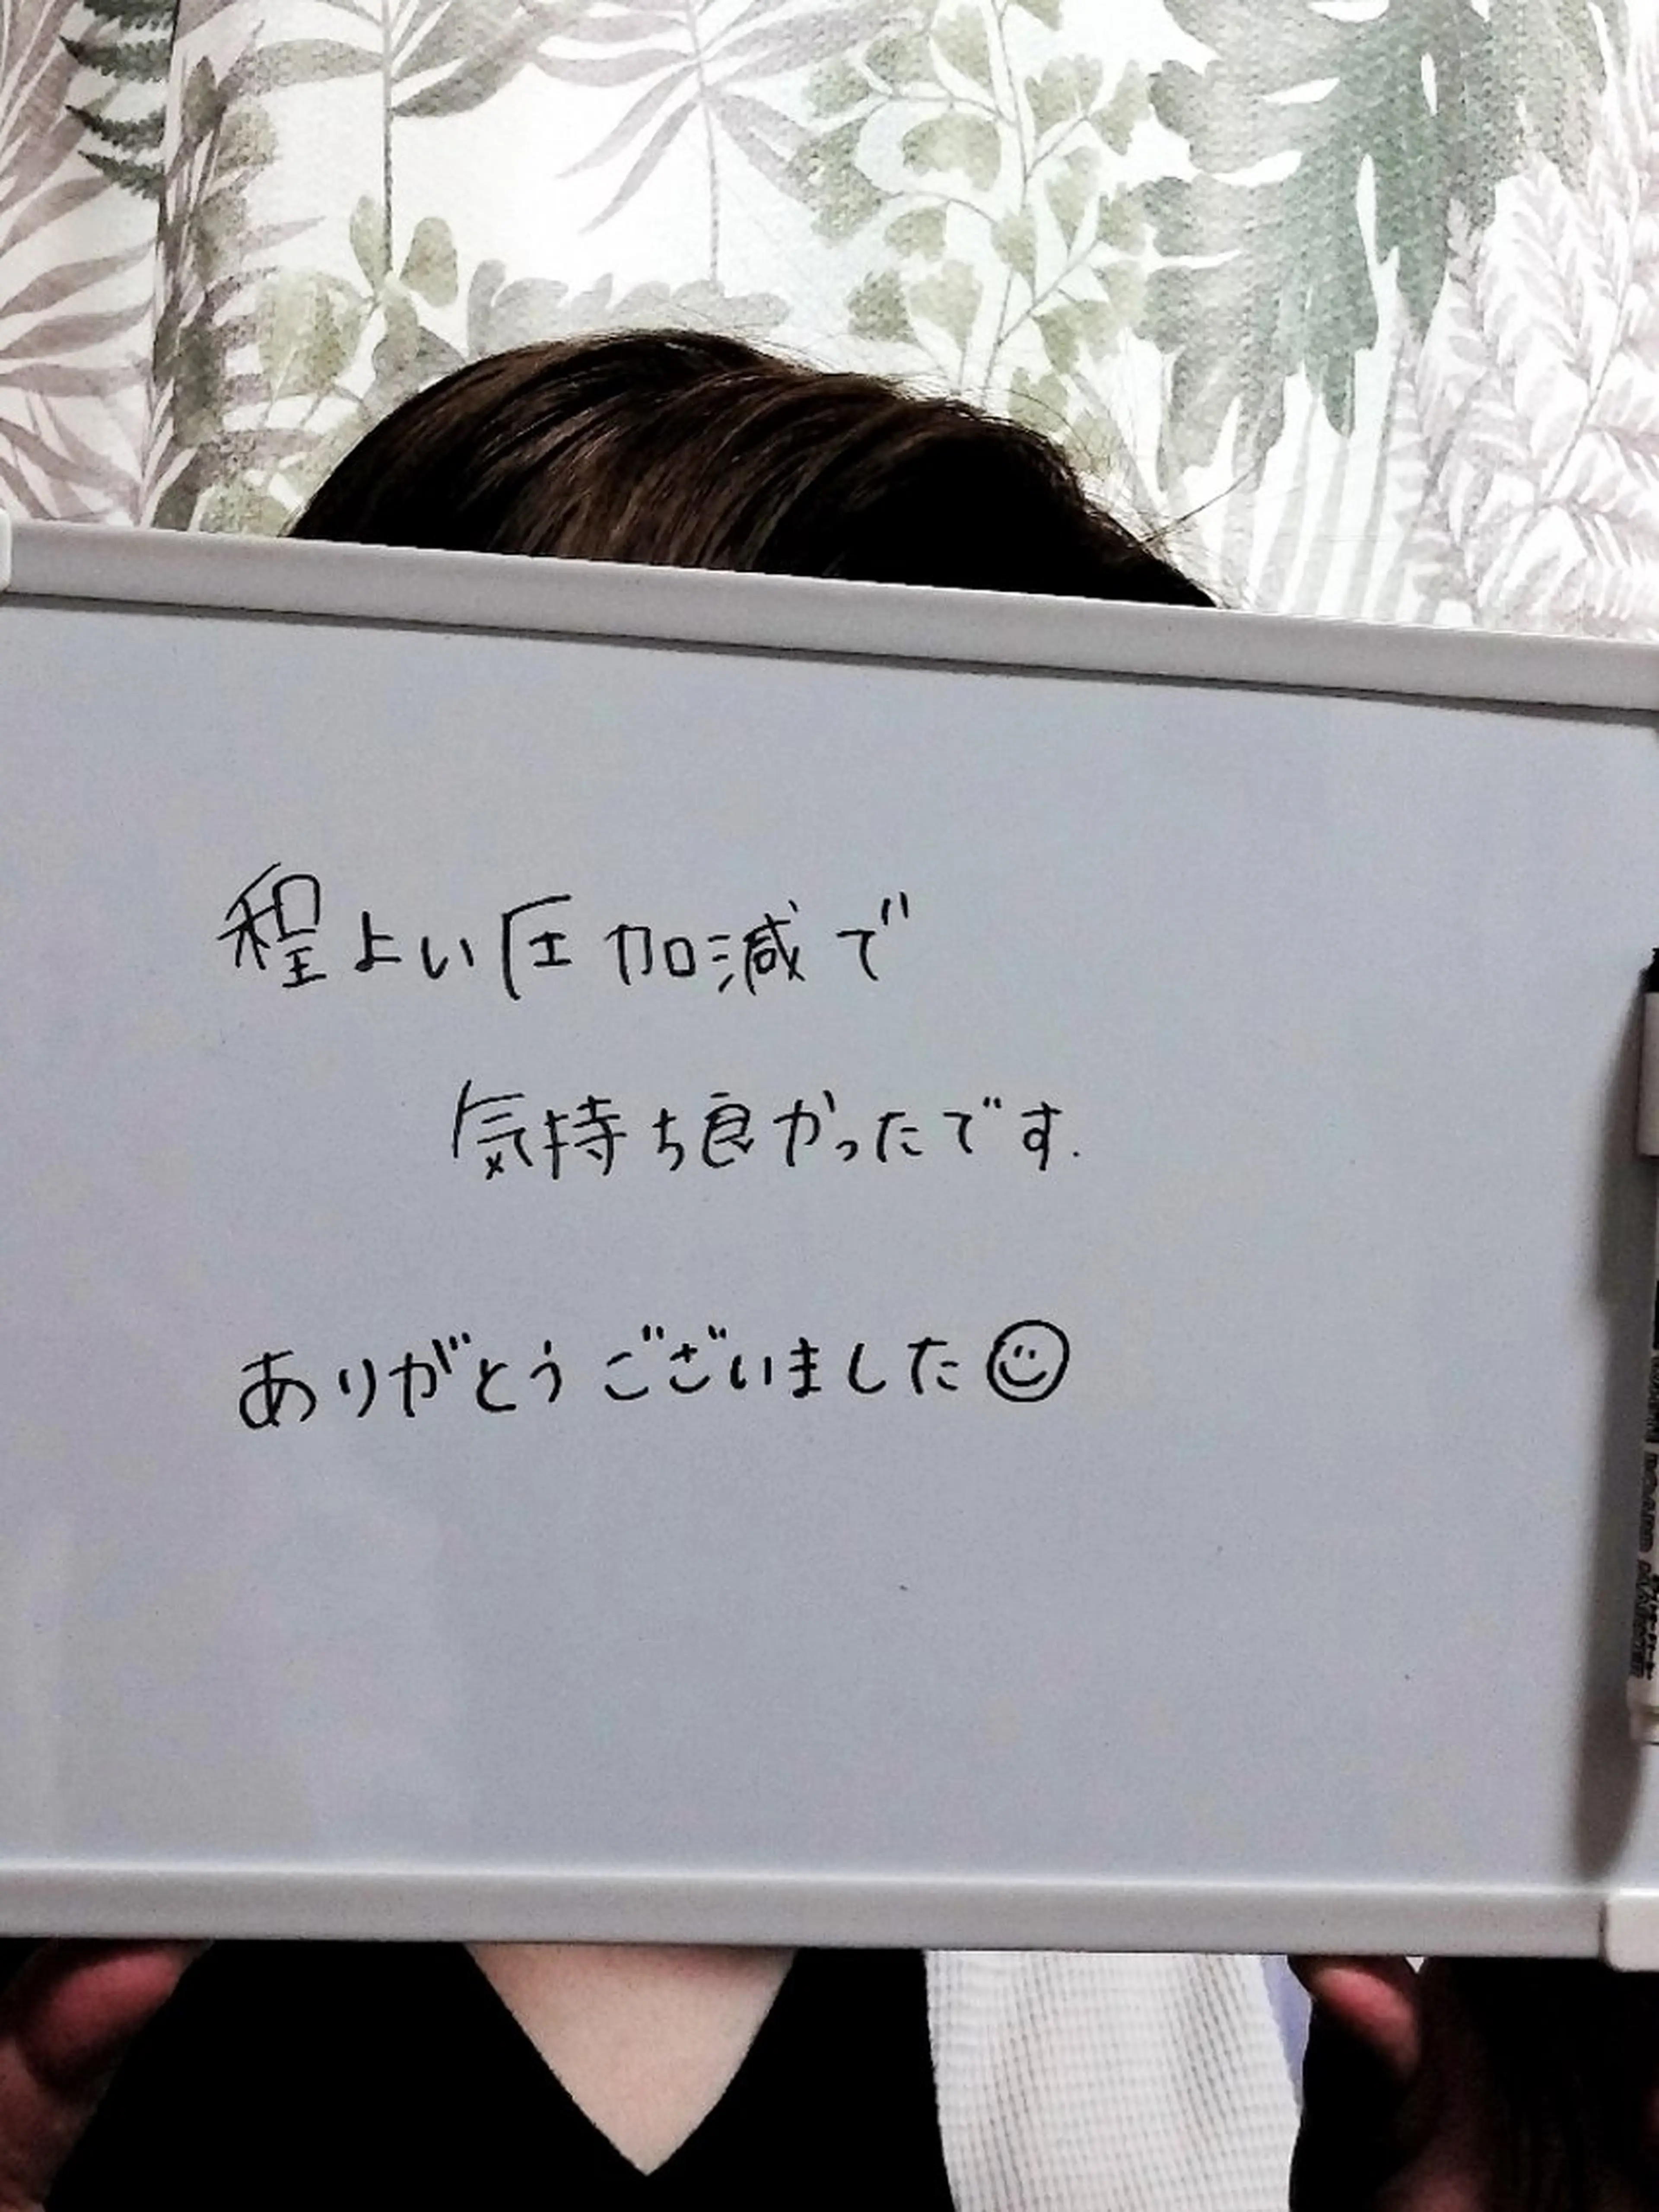 程よい圧加減で
気持ち良かったです.
ありがとうございました☺